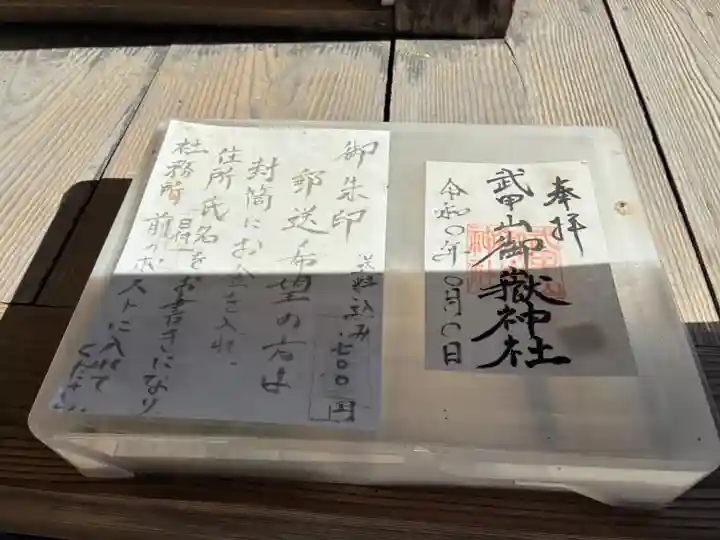 奉拝
武甲山御嶽神社
令和〇年〇月〇日
御朱印
送料込み
七〇〇円
郵送希望の方は
封筒にお金を入れ、
住所氏名をお書きになり
社務所前のポストに入れて
ください。